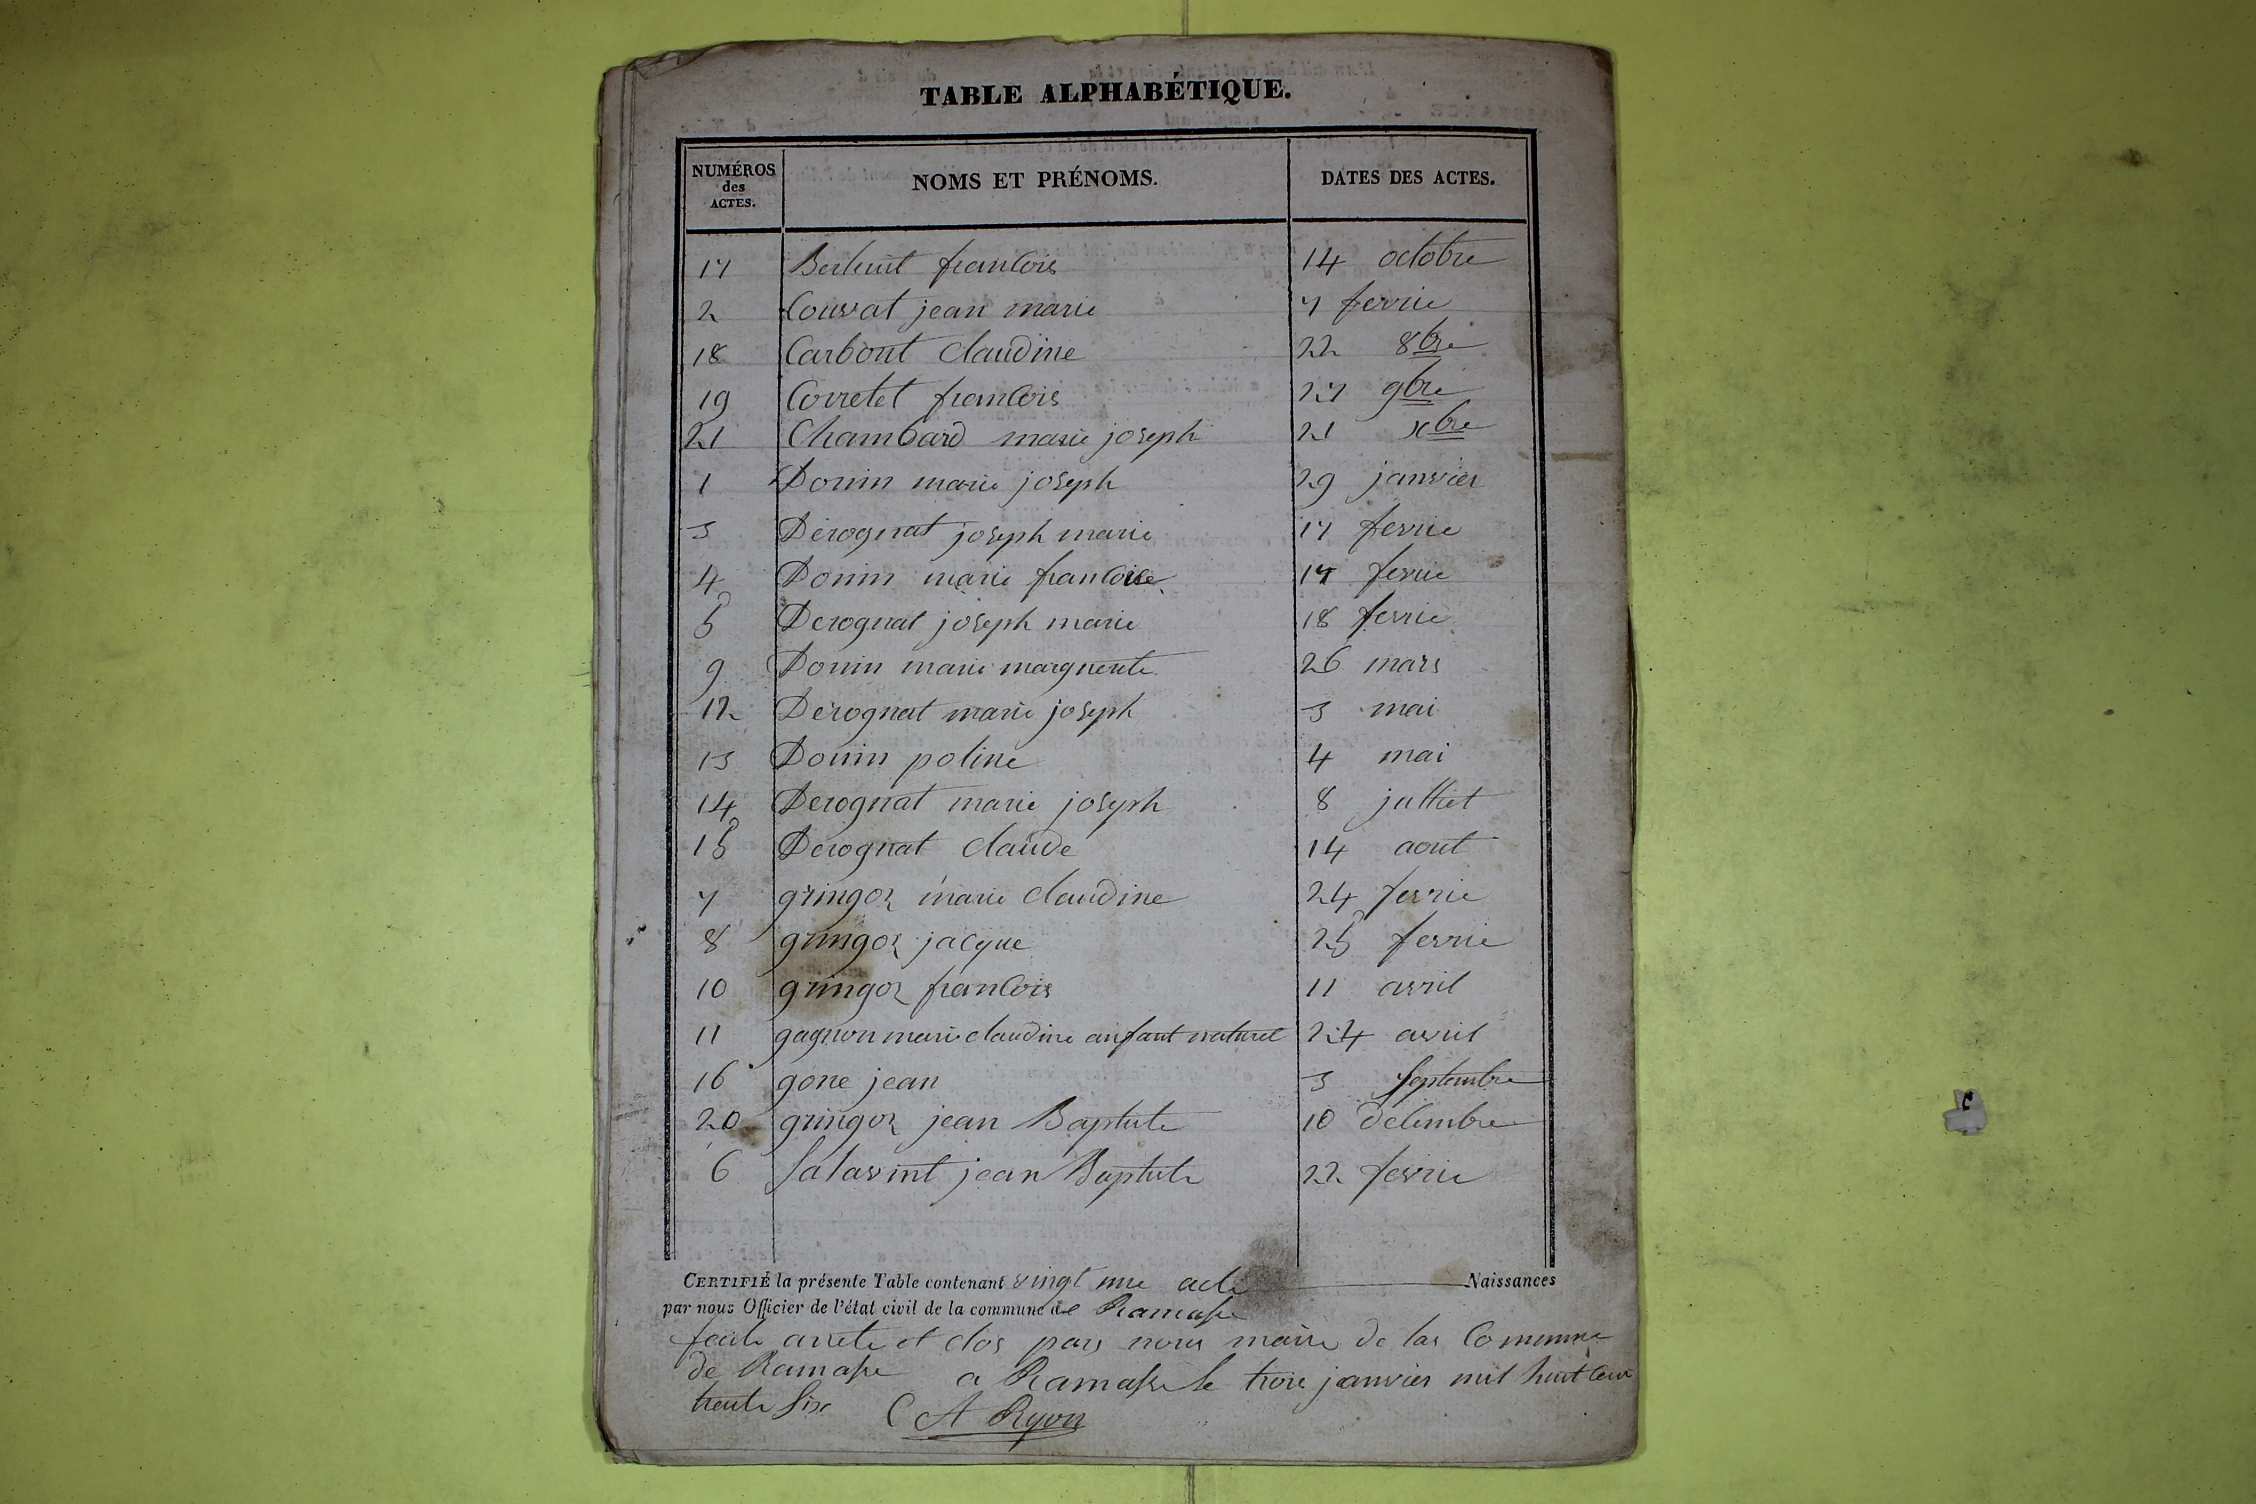 TABLE ALPHABÉTIQUE.
NUMÉROS des ACTES. NOMS ET PRÉNOMS. DATES DES ACTES.
17 francois 14 octobre
2 Couvat jean marie 7 fevrie
18 Carbont Claudine 22 8bre
19 Corretet francois 27 9bre
21 Chambard marie joseph 21 xbre
1 Donin marie joseph 29 janvier
3 Derognat joseph marie 17 fevrie
4 Donin marie francoise 17 fevrie
5 Derognat joseph marie 18 fevrie
9 Donin marie marguerite 26 mars
12 Derognat marie joseph 3 mai
13 Donin poline 4 mai
14 Derognat marie joseph 8 julliet
15 Derognat claude 14 aout
7 gringoz marie Claudine 24 fevrie
8 gringoz jacque 25 fevrie
10 gringoz francois 11 avril
11 gagnon marie claudine anfant naturel 24 avril
16 gone jean 3 Septembre
20 gringoz jean Baptiste 10 decembre
6 Salavint jean Baptiste 22 fevrie
CERTIFIÉ la présente Table contenant vingt une acte Naissances
par nous Officier de l'état civil de la commune de Ramasse
faite arrete et clos par nous maire de las Commune
de Ramasse a Ramasse le trois janvier mil huit cent
trente Six